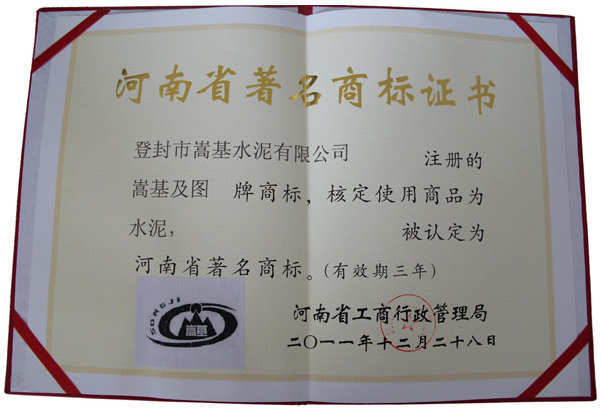 河南省著名商标证书
登封市嵩基水泥有限公司 注册的
嵩基及图 牌商标，核定使用商品为
水泥， 被认定为
河南省著名商标。（有效期三年）
SONGJI
嵩基
河南省工商行政管理局
二〇一一年十二月二十八日